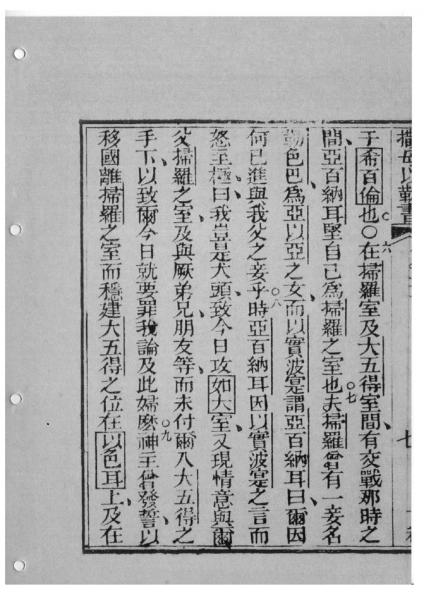 于希百倫也○六○在掃羅室及大五得室間、有交戰那時之
間、亞百納耳堅自己為掃羅之室也○七夫掃羅曾有一妾名
勒色巴為亞以亞之女、而以實波寔謂亞百納耳曰、爾因
何已進與我父之妾乎○八時亞百納耳因以實波寔之言而
怒至極曰、我豈是犬頭、致今日攻如大室、又現情意與爾
父掃羅之室、及與厥弟兄朋友等、而未付爾入大五得之
手下、以致爾今日就要罪我論及此婦麽○九神主曾發誓以
移國離掃羅之室、而穩建大五得之位在以色耳上、及在